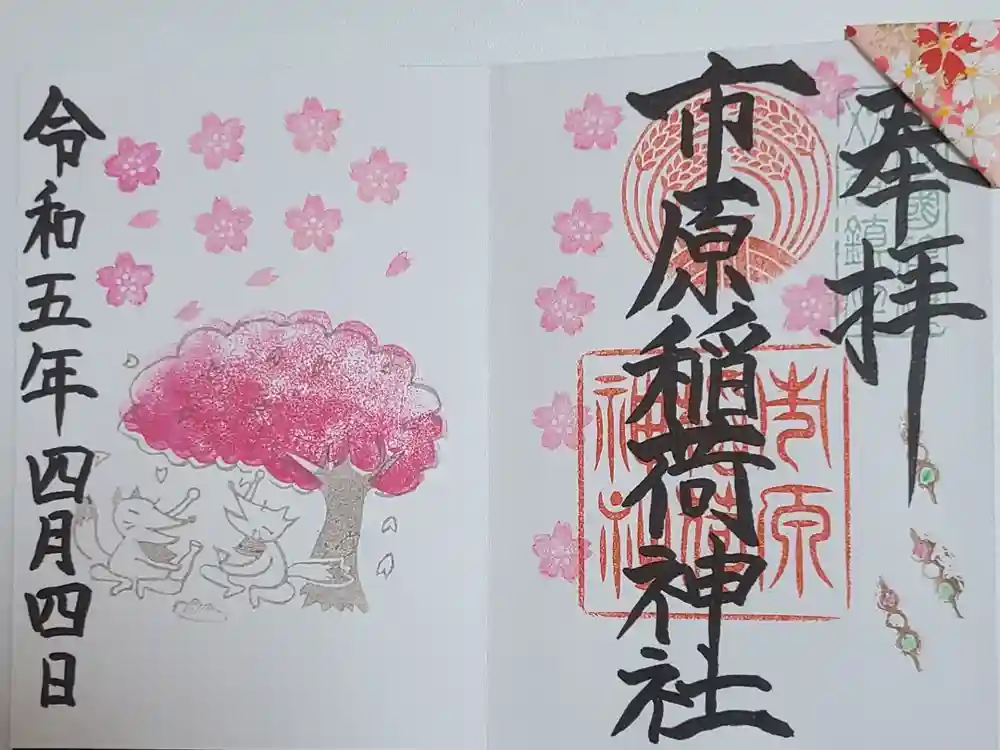 奉拝
市原稲荷神社
市原稲荷神社
令和五年四月四日